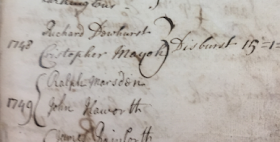 Richard Dewhurst
1748 Cristopher Mayoh Disburst 15=1=
Ralph Marsden
1749 John Haworth
James Rainforth